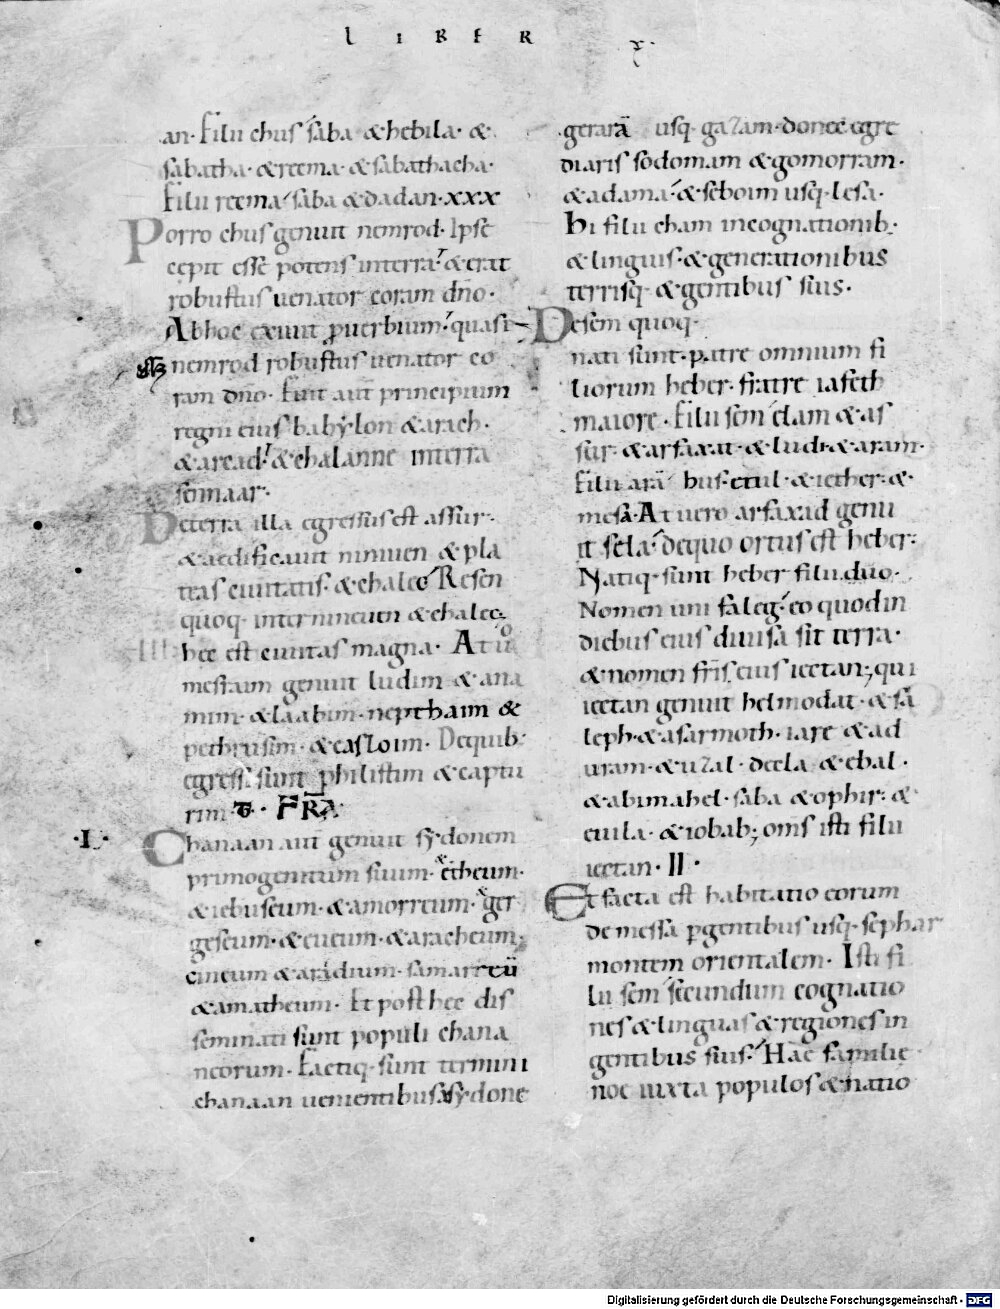 LIBER
an· Filii chus saba & hebila· &
sabatha· & reema· & sabathacha·
Filii reema saba & dadan· xxx
Porro chus genuit nemrod· Ipse
cepit esse potens interra & erat
robustus uenator coram dno·
Abhoc exiuit puerbium· quasi
nemrod robustus uenator co
ram dno· Fuit aut principium
regni eius babylon & arach·
& archad & chalanne interra
sennaar·
Deterra illa egressus est assur·
& aedificauit niniuen & pla
teas ciuitatis· & chale Resen
quoq· inter nineuen & chale
hec est ciuitas magna· At u
mesraim genuit ludim & ana
mim· & laabim· nepthaim &
pethrusim· & casloim· De quib·
egressi sunt philistim & captu
rim·
·I· Chanaan aut genuit sydonem
primogenitum suum· &heum·
& iebuseum· & amorreum· ger
geseum· & eueum· & aracheum·
cineum & aradium· samareū
& amatheum· Et post hec dis
seminati sunt populi chana
neorum· Factiq· sunt termini
chanaan uenientibus sydone
gerarā usq· gazam· donec egre
diaris sodomam & gomorram·
& adama & seboim usq· lesa·
hi filii cham incognationib·
& linguis· & generationibus
terrisq· & gentibus suis·
Desem quoq·
nati sunt· patre omnium fi
liorum heber· fratre iafeth
maiore· Filii sem elam & as
sur· & arfaxat· & lud· & aram·
Filii arā hus· & ul· & iether· &
mesa· At uero arfaxad genu
it sela· dequo ortus est heber·
Natiq· sunt heber filii duo·
Nomen uni faleg· eo quodin
diebus eius diuisa sit terra·
& nomen fris eius iectan; qui
iectan genuit helmodat· & sa
leph· & asarmoth· iare & ad
uram· & uzal· decla & ebal·
& abimahel· saba & ophir· &
euila· & iobab; oms isti filii
iectan· II·
Et facta est habitatio eorum
demessa pgentibus usq· sephar
montem orientalem· Isti fi
lii sem secundum cognatio
nes & linguas & regiones in
gentibus suis· Hae familie
noe iuxta populos & natio
Digitalisierung gefördert durch die Deutsche Forschungsgemeinschaft - DFG